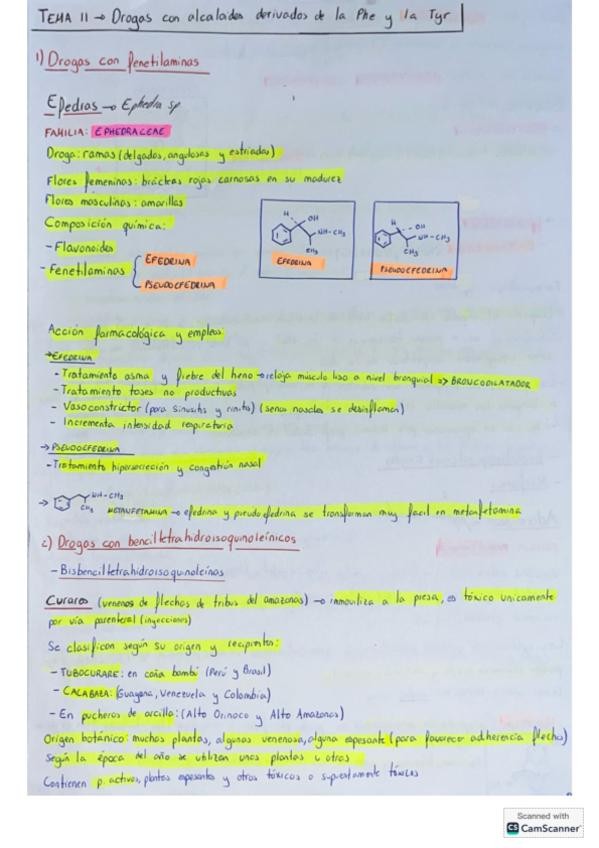 TEMA 11 → Drogas con alcaloides derivados de la Phe y la Tyr
1) Drogas con fenetilaminas
Efedras → Ephedra sp
FAMILIA: EPHEDRACEAE
Droga: ramas (delgadas, angulosas y estriadas)
Flores femeninas: brácteas rojas carnosas en su madurez
Flores masculinas: amarillas
Composición química:
- Flavonoides
- Fenetilaminas { EFEDRINA
PSEUDOEFEDRINA
H OH
NH-CH3
CH3
EFEDRINA
H OH
NH-CH3
CH3
PSEUDOEFEDRINA
Acción farmacológica y empleo:
→ EFEDRINA
- Tratamiento asma y fiebre del heno → relaja músculo liso a nivel bronquial => BRONCODILATADOR
- Tratamiento toses no productivas
- Vasoconstrictor (para sinusitis y rinitis) (senos nasales se desinflaman)
- Incrementa intensidad respiratoria
→ PSEUDOEFEDRINA
- Tratamiento hipersecreción y congestión nasal
→ NH-CH3
CH3 METANFETAMINA → efedrina y pseudoefedrina se transforman muy facil en metanfetamina
2) Drogas con benciltetrahidroisoquinoleínicos
- Bisbenciltetrahidroisoquinoleínas
Curares (venenos de flechas de tribus del amazonas) → inmoviliza a la presa, es tóxico unicamente
por vía parenteral (inyecciones)
Se clasifican según su origen y recipientes:
- TUBOCURARE: en caña bambú (Perú y Brasil)
- CALABAZA: (Guayana, Venezuela y Colombia)
- En pucheros de arcilla: (Alto Orinoco y Alto Amazonas)
Origen botánico: muchas plantas, algunas venenosa, alguna espesante (para favorecer adherencia flecha)
Según la época del año se utilizan unas plantas u otras
Contienen p. activos, plantas espesantes y otros tóxicos o supuestamente tóxicos
Scanned with
CS CamScanner